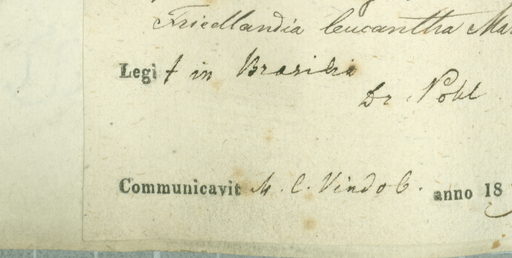 Friedlandia leucantha Mar
Legit in Brasilia
Dr. Pohl
Communicavit M. C. Vindob. anno 18